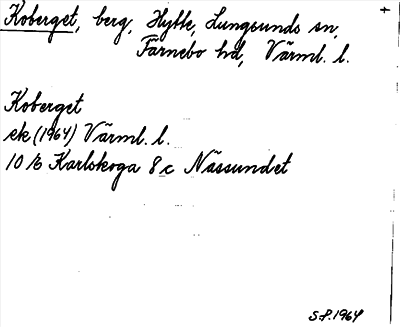 Koberget, berg, Hytte, Lungsunds sn,
Färnebo hd, Värml. l.
Koberget
ek (1964) Värml. l.
10/6 Karlskoga 8 c Nässundet
S.P. 1964